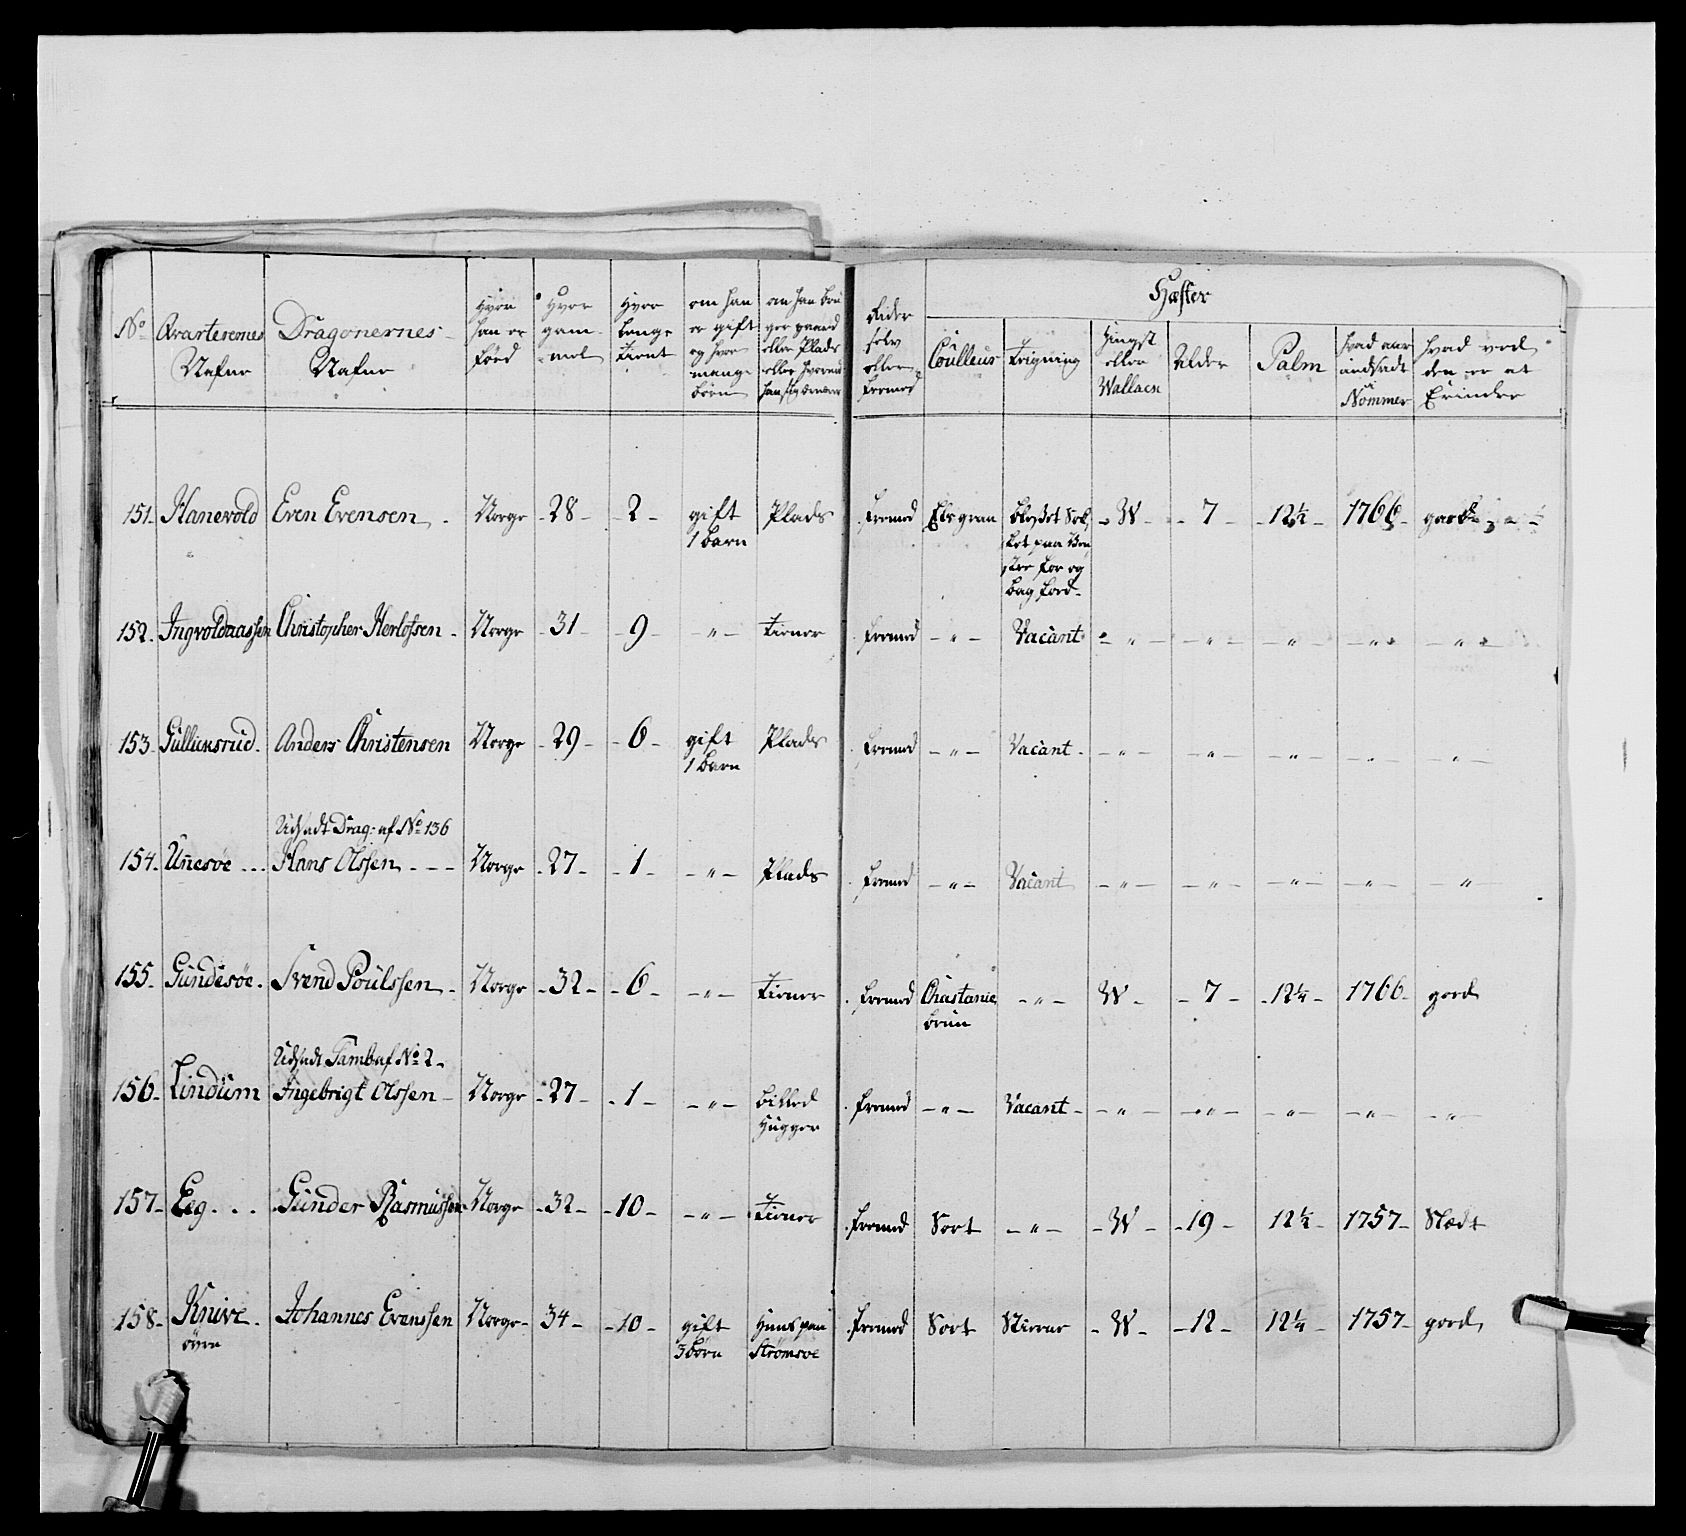 Hæster
No Qvarterernes Nafne | Dragonernes Nafne | Hvor han er født | Hvor gammel | Hvor længe tient | om han er gift og hvor mange børn | om han bruger gaard eller Plads eller hvormed han sig ernærer | Rider selv eller fremed | Couleur | teigning | Hingst eller Wallack | Alder | Palm | hvad aar indsadt i Nommer | hvad ved den er at Erindre
151. Hanevold | Even Evensen | Norge | 28 | 2 | gift 1 barn | Plads | fremed | | | W | 7 | 12½ | 1766 |
152. Ingvoldaassen | Christopher Herlofsen | Norge | 31 | 9 | " | tiener | fremed | " | Vacant | " | " | " | " | "
153. Gullicksrud | Anders Christensen | Norge | 29 | 6 | gift 1 barn | Plads | fremed | " | Vacant | " | " | " | " | "
Udsadt Drag: af No 136
154. Unesøe | Hans Olssen | Norge | 27 | 1 | " | Plads | fremed | " | Vacant | " | " | " | " | "
155. Gundesøe | Svend Poulssen | Norge | 32 | 6 | " | tiener | fremed | Chastanie brun | " | W | 7 | 12¼ | 1766 | goed
Udsadt Tamb af No 2
156. Lindum | Ingebrigt Olssen | Norge | 27 | 1 | " | billed Hugger | fremed | " | Vacant | " | " | " | " | "
157. Eeg | Gunder Rasmussen | Norge | 32 | 10 | " | tiener | fremed | Sort | " | W | 19 | 12½ | 1757 | Slædt
158. Knive øvre | Johannes Evenssen | Norge | 34 | 10 | gift 3 børn | Huus paa Strømsøe | fremed | Sort | Stierne | W | 12 | 12¼ | 1757 | goed